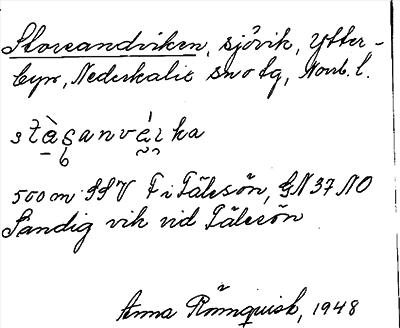 Storsandviken, sjövik, Ytter-
byn, Nederkalix snv tg, Norrb. l.
500 m SSV F i Tälesön, GN 37 NO
Sandig vik vid Tälesön
Anna Rönnquist, 1948